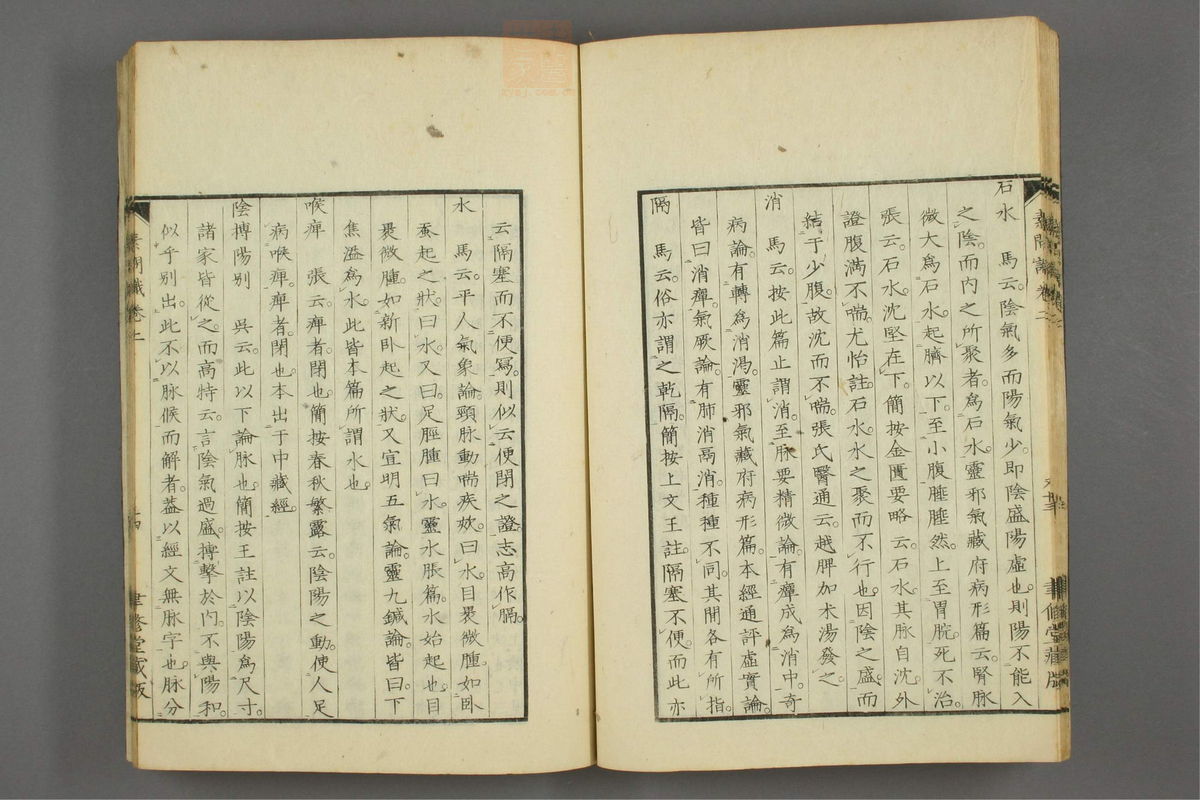 石水　馬云。陰氣多而陽氣少。即陰盛陽虛也。則陽不能入
之陰。而内之所聚者爲石水。靈邪氣藏府病形篇云。腎脉
微大爲石水。起臍以下。至小腹腄腄然。上至胃脘。死不治。
張云。石水沈堅在下。簡按金匱要略云。石水其脉自沈。外
證腹滿不喘。尤怡註。石水水之聚而不行也。因陰之盛而
結于少腹。故沈而不喘。張氏醫通云。越脾加朮湯發之。
消　馬云。按此篇止謂消。至脉要精微論。有癉成爲消中。奇
病論。有轉爲消渇。靈邪氣藏府病形篇。本經通評虛實論。
皆曰消癉。氣厥論。有肺消鬲消。種種不同。其間各有所指
隔　馬云。俗亦謂之乾隔。簡按上文王註隔塞不便。而此亦
云隔塞而不便寫。則似云便閉之證。志高作膈。
水　馬云。平人氣象論。頸脉動喘疾欬。曰水。目裹微腫。如臥
蚕起之狀。曰水。又曰。足脛腫曰水。靈水脹篇。水始起也。目
裹微腫。如新卧起之狀。又宣明五氣論。靈九鍼論。皆曰下
焦溢爲水。此皆本篇所謂水也。
喉痺　張云。痺者。閉也。簡按春秋繁露云。陰陽之動。使人足
病喉痺。痺者。閉也。本出于中藏經。
陰搏陽別　吳云。此以下論脉也。簡按王註以陰陽爲尺寸。
諸家皆從之。而高特云。言陰氣過盛。搏擊於内。不與陽和。
似乎別出。此不以脉候而解者。葢以經文無脉字也。脉分
素問識卷二
聿修堂藏版